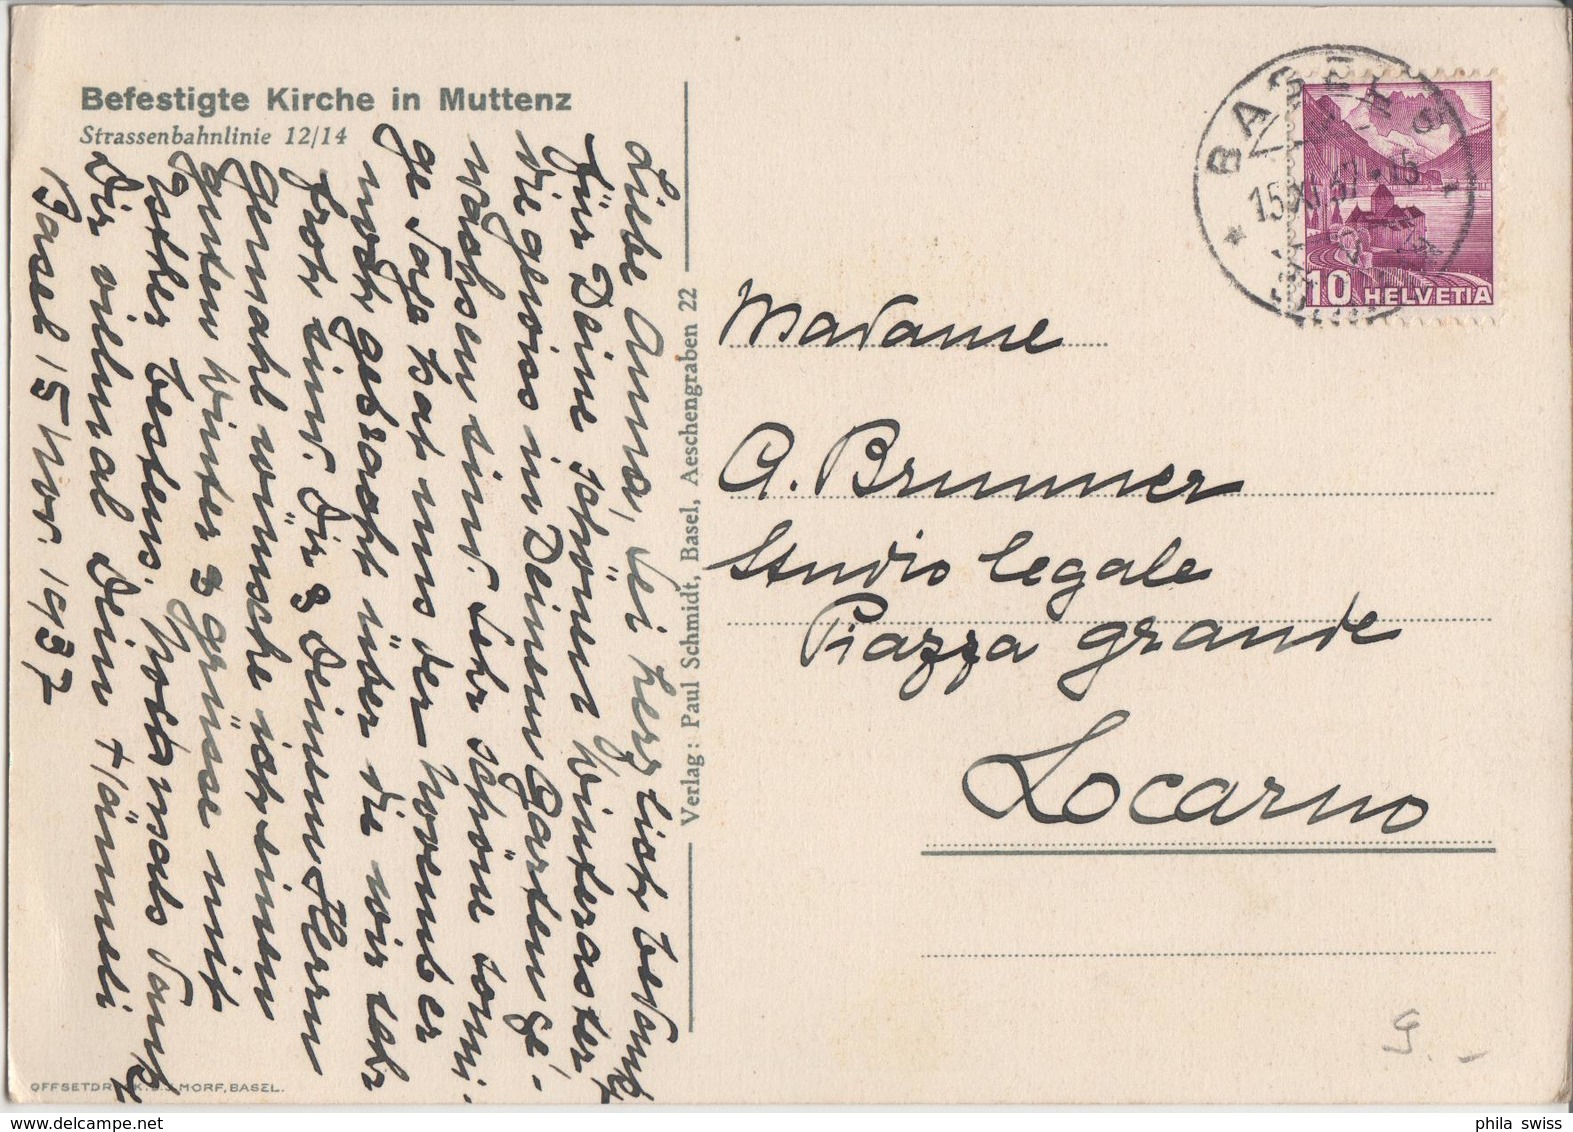 Befestigte Kirche in Muttenz
Strassenbahnlinie 12/14
Liebe Anna, sei herzlich bedankt
für Deine schönen Winteraster
die gewiss in Deinem Garten ge-
wachsen sind. Sehr schöne sonni-
ge Tage hat uns der November
noch gebracht über die wir sehr
froh sind. Dir & Deinem Herrn
Gemahl wünsche ich einen
guten Winter & grüsse mit
Esther bestens. Nochmals Dank
Dir vielmal Dein Hämmeli
Basel 15 Nov. 1937
Verlag: Paul Schmidt, Basel, Aeschengraben 22
OFFSETDRUCK: MORF, BASEL.
BASEL
15.XI.37.15
10 HELVETIA
Madame
A. Brunner
Studio legale
Piazza grande
Locarno
9.-
phila swiss